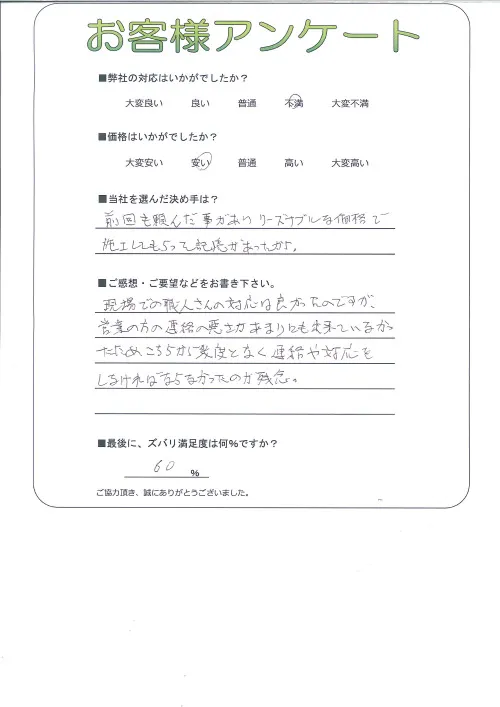 お客様アンケート
■弊社の対応はいかがでしたか？
大変良い 良い 普通 不満 大変不満
■価格はいかがでしたか？
大変安い 安い 普通 高い 大変高い
■当社を選んだ決め手は？
前回も頼んだ事があり リーズナブルな価格で
施工してもらって記憶があったから。
■ご感想・ご要望などをお書き下さい。
現場での職人さんの対応は良かったのですが、
営業の方の連絡の悪さがあまりにも
ためこちらから数度となく連絡や対応を
しなければならなかったのが残念。
■最後に、ズバリ満足度は何％ですか？
60 ％
ご協力頂き、誠にありがとうございました。